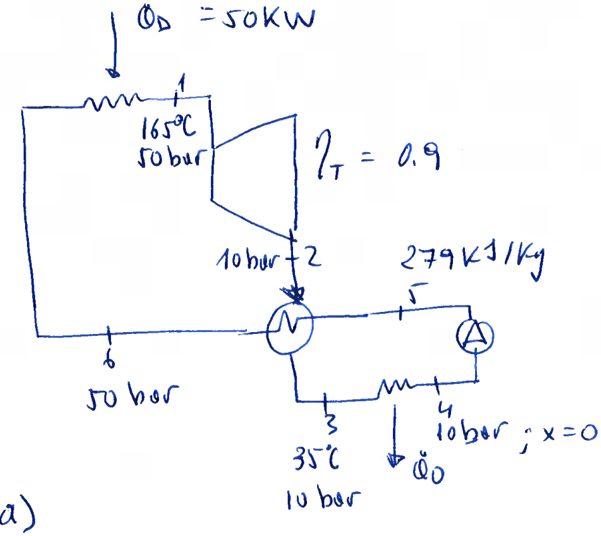 Q̇D = 50KW
1
165°C
50 bar
ηT = 0.9
10 bar 2
279 KJ/Kg
5
6
50 bar
3
35°C
10 bar
4
10 bar ; x=0
Q̇O
a)